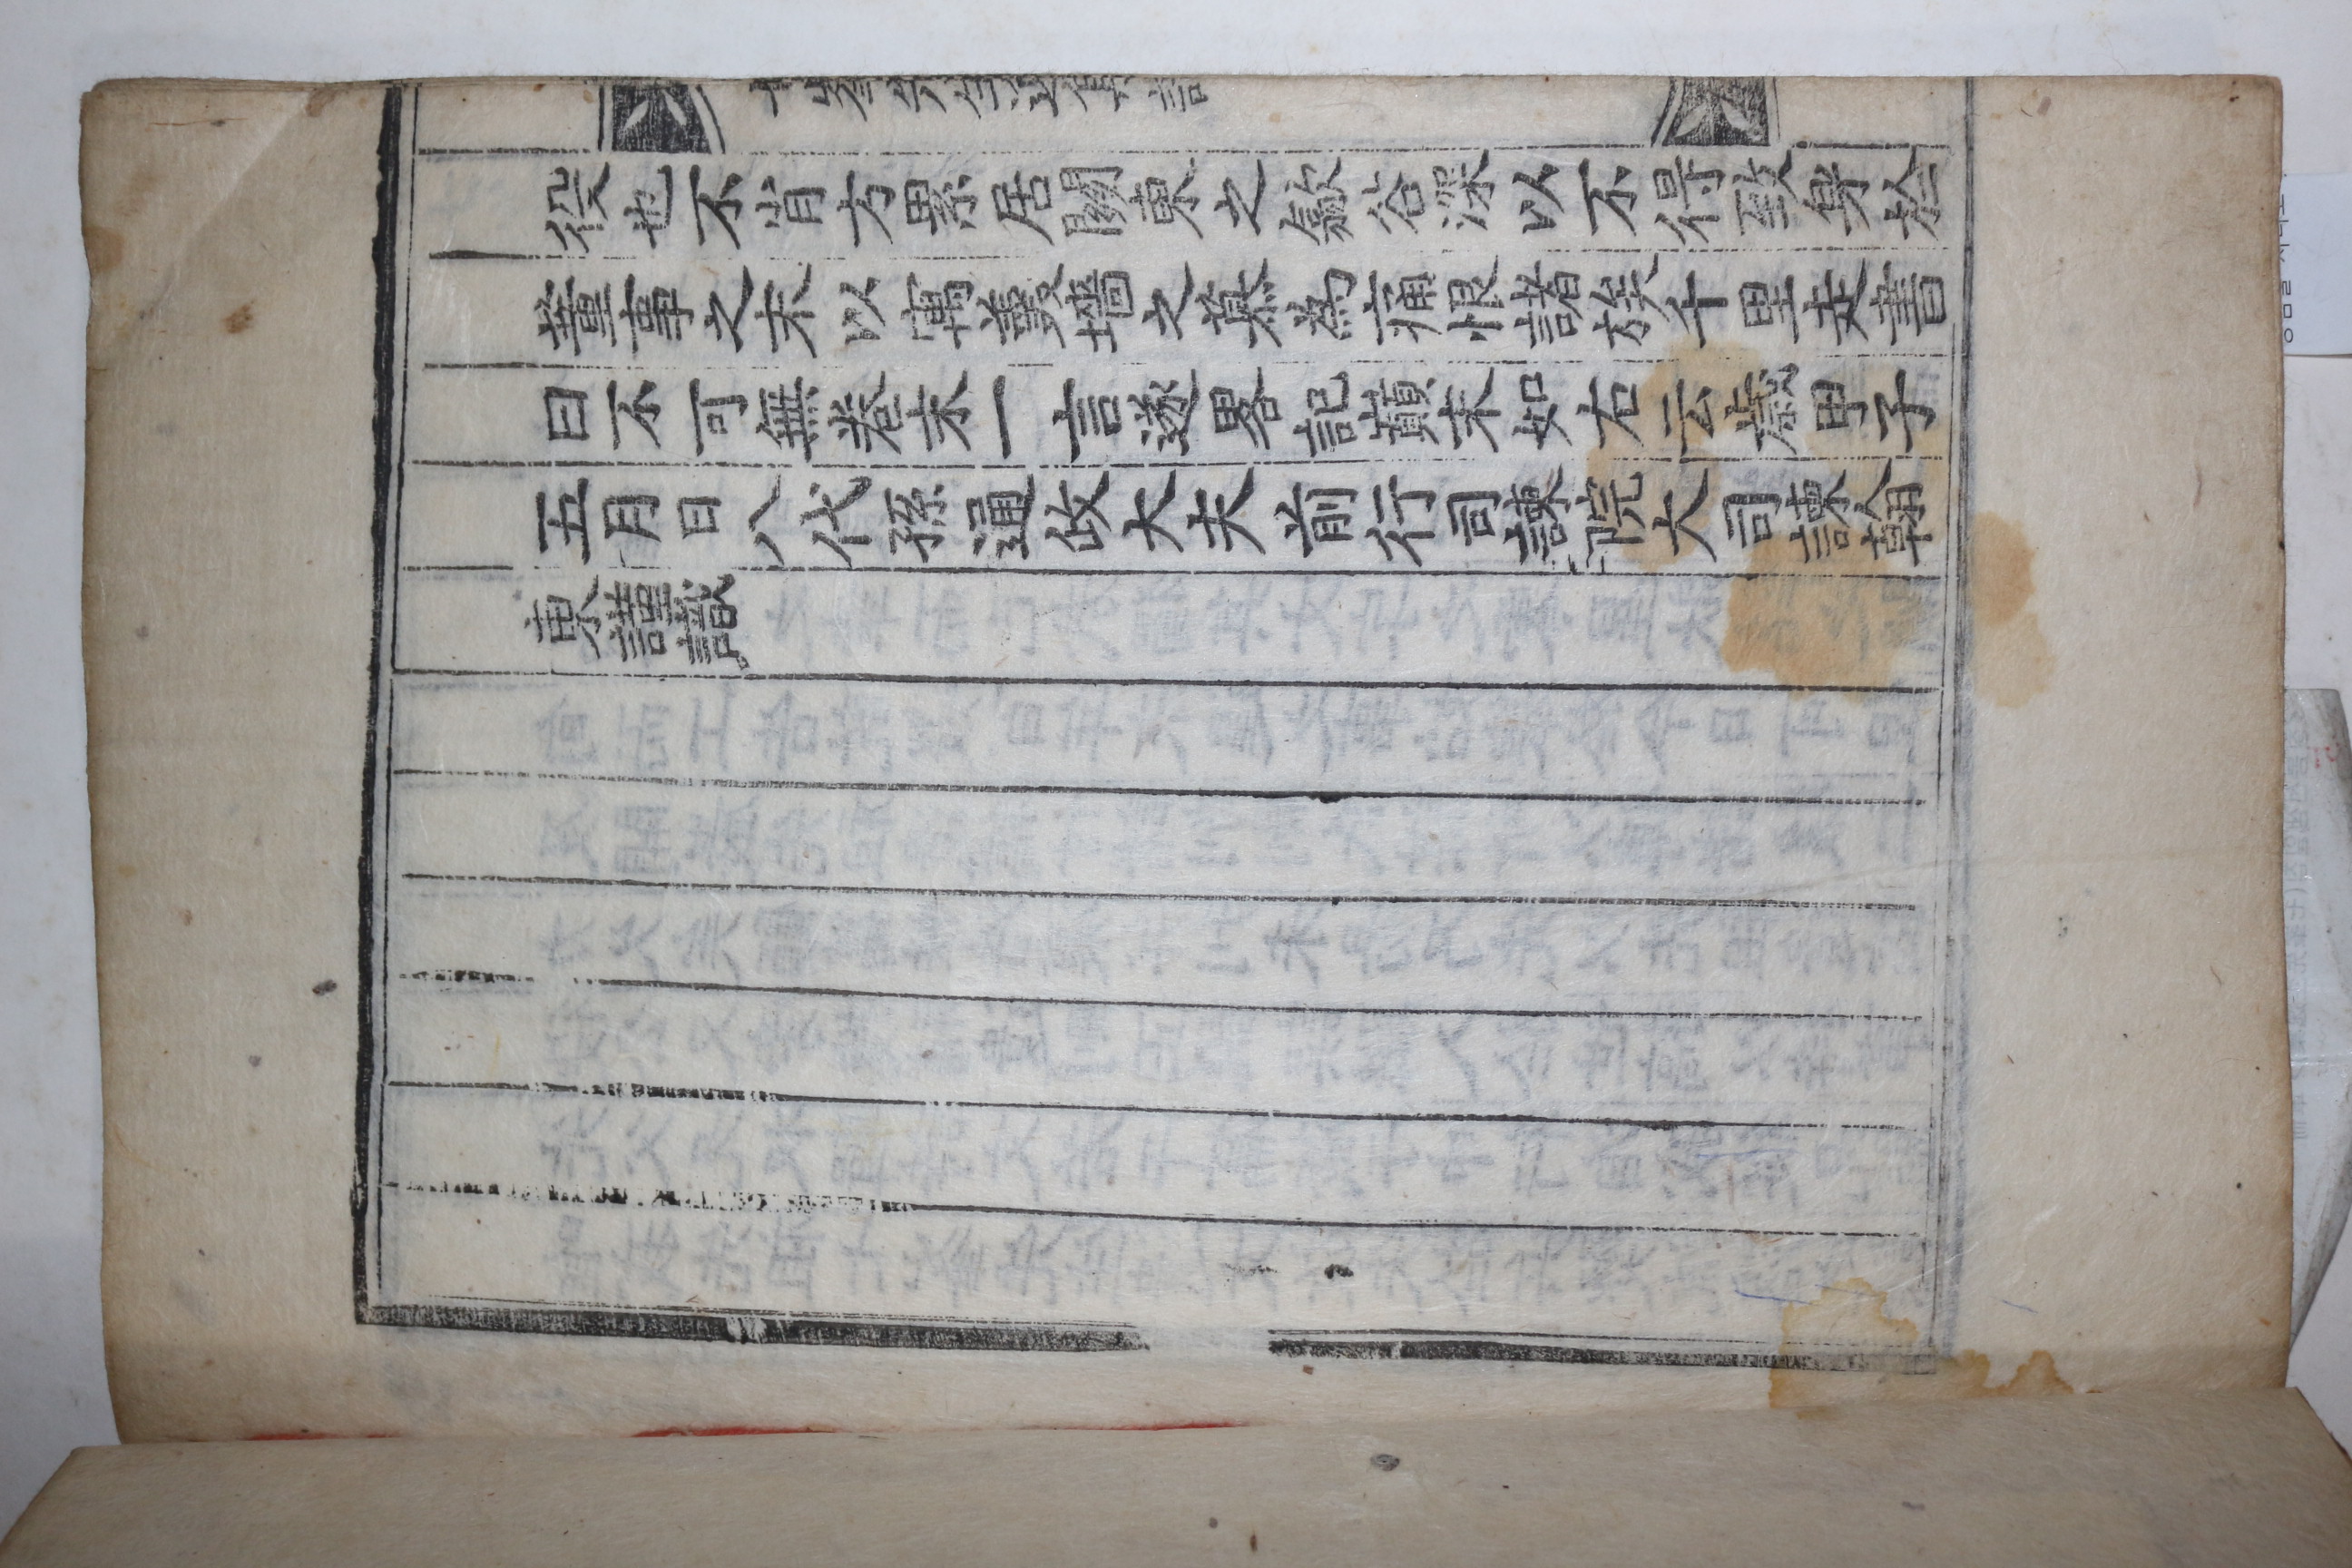 七峯先生逸集識
役也不肖方累居關東之歙谷深以不得致身於
董事之末以寓羹墻之慕為痛恨諸族千里走書
曰不可無卷末一言遂畧記巔末如右云歲甲子
五月日八代孫通政大夫前行司諫院大司諫翰
東謹識